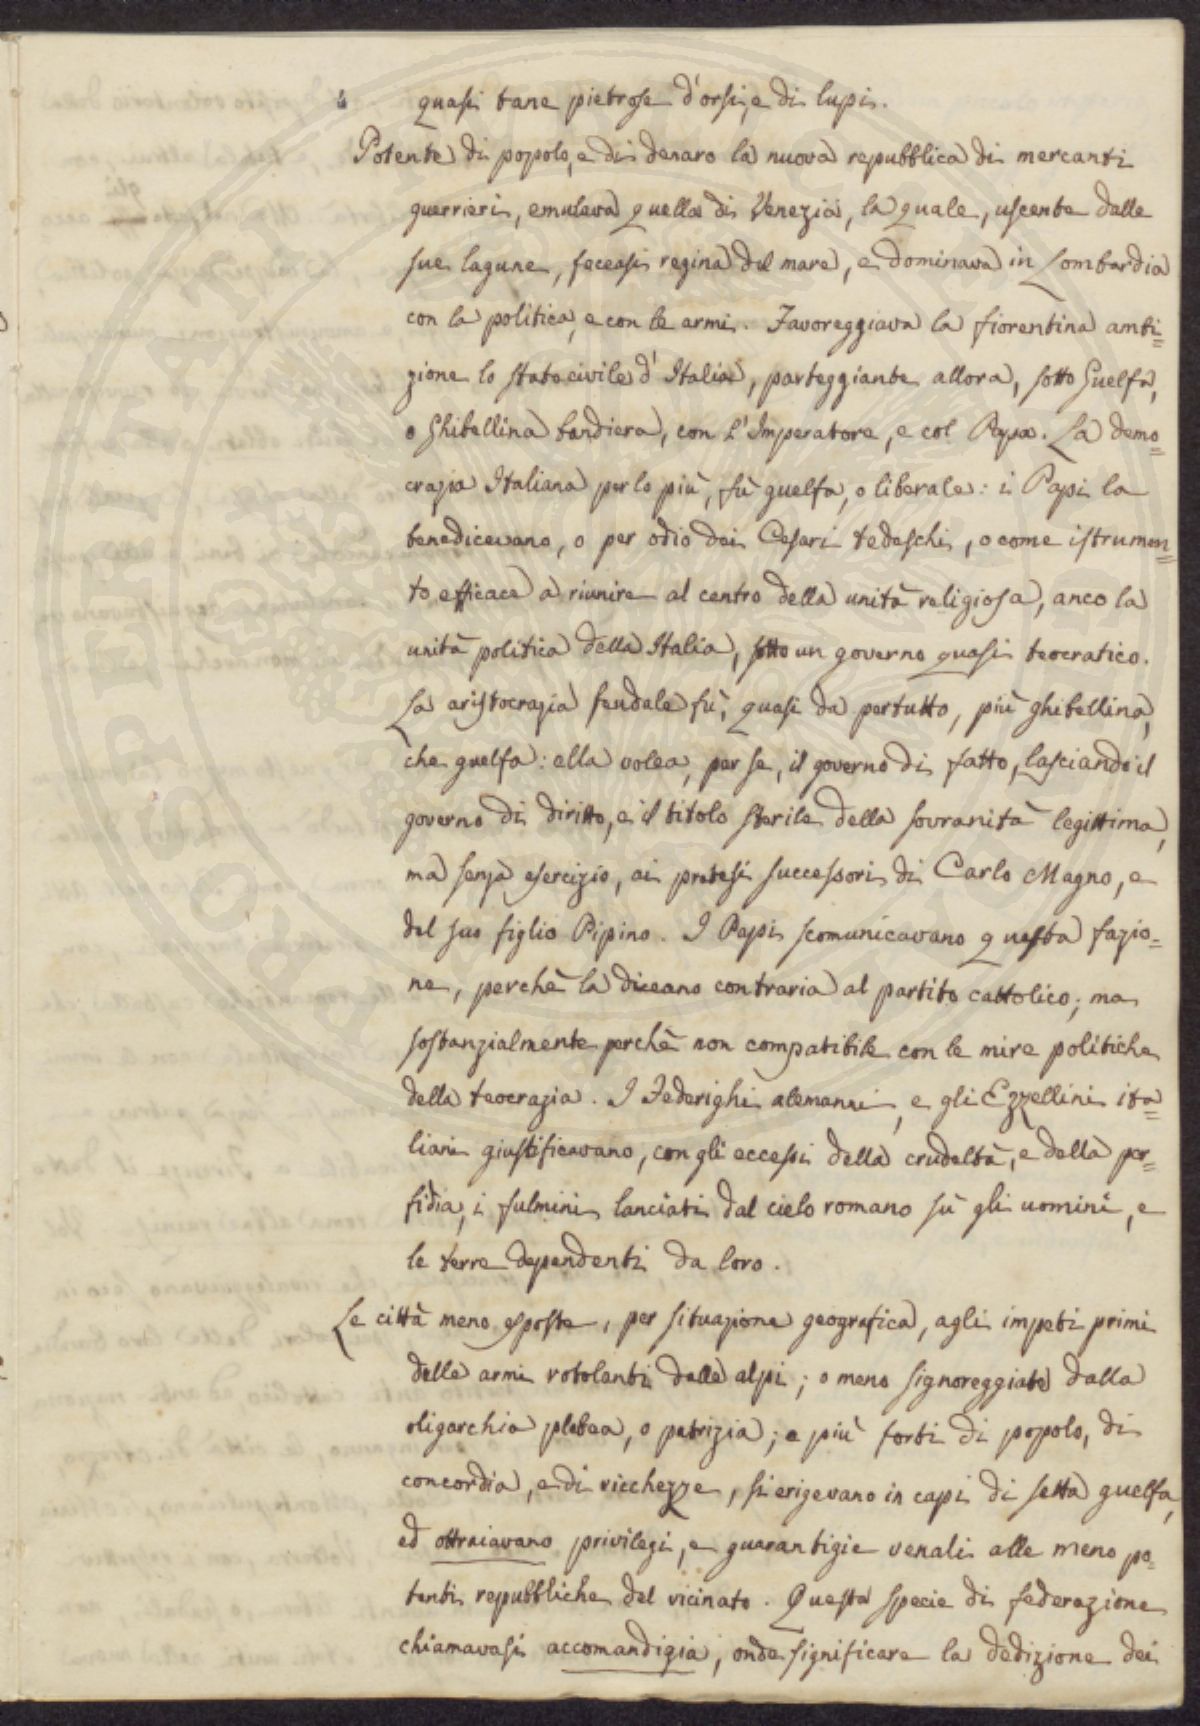 quasi tane pietrose d'orsi, e di lupi.
Potente di popolo, e di denaro la nuova repubblica di mercanti
guerrieri, emulava quella di Venezia, la quale, uscente dalle
sue lagune, feceasi regina del mare, e dominava in Lombardia
con la politica, e con le armi. Favoreggiava la fiorentina ambi=
zione lo stato civile d'Italia, parteggiante allora, sotto Guelfa,
o Ghibellina bandiera, con l'Imperatore, e col Papa. La demo=
crazia Italiana per lo più, fù guelfa, o liberale: i Papi la
benedicevano, o per odio dei Cesari tedeschi, o come istrumen=
to efficace a riunire al centro della unità religiosa, anco la
unità politica della Italia, sotto un governo quasi teocratico.
La aristocrazia feudale fù, quasi da pertutto, più ghibellina,
che guelfa: ella volea, per se, il governo di fatto, lasciando il
governo di diritto, e il titolo sterile della sovranità legittima,
ma senza esercizio, ai pretesi successori di Carlo Magno, e
del suo figlio Pipino. I Papi scomunicavano questa fazio=
ne, perchè la diceano contraria al partito cattolico; ma
sostanzialmente perchè non compatibile con le mire politiche
della teocrazia. I Federighi alemanni, e gli Ezzellini ita=
liani giustificavano, con gli eccessi della crudeltà, e della per=
fidia, i fulmini lanciati dal cielo romano sù gli uomini, e
le terre dependenti da loro.
Le città meno esposte, per situazione geografica, agli impeti primi
delle armi rotolanti dalle alpi; o meno signoreggiate dalla
oligarchia plebea, o patrizia; e più forti di popolo, di
concordia, e di ricchezze, si erigevano in capi di setta guelfa,
ed ottraiavano privilegi, e guarantigie venali alle meno po=
tenti repubbliche del vicinato. Questa specie di federazione
chiamavasi accomandigia, onde significare la dedizione dei
gli
PROSPERITATI